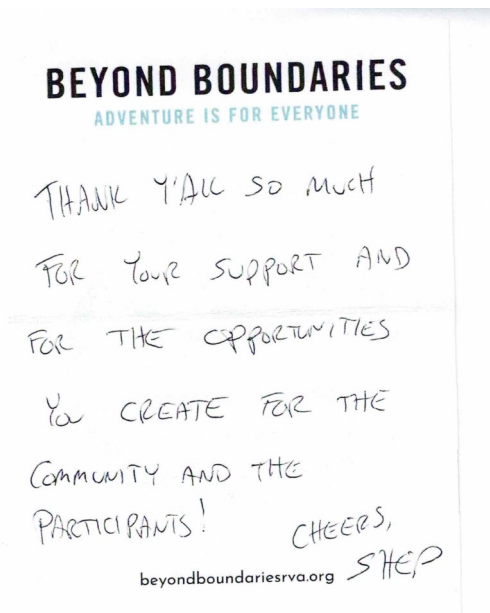 BEYOND BOUNDARIES
ADVENTURE IS FOR EVERYONE
THANK Y'ALL SO MUCH
FOR YOUR SUPPORT AND
FOR THE OPPORTUNITIES
YOU CREATE FOR THE
COMMUNITY AND THE
PARTICIPANTS!
CHEERS,
SHEP
beyondboundariesrva.org